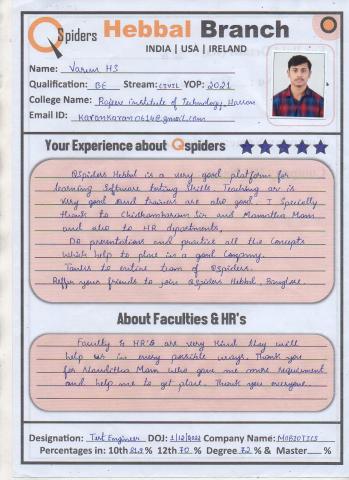 QSpiders Hebbal Branch
INDIA | USA | IRELAND
Name: Varun HS
Qualification: BE Stream: CIVIL YOP: 2021
College Name: Rajeev institute of Technology, Hassan
Email ID: Karankaran0614@gmail.com
Your Experience about Qspiders
QSpiders Hebbal is a very good platform for
learning Software testing skills. Teaching as is
very good and trainers are also good. I Specially
thank to Chidhambaram Sir and Mamatha Mam
and also to HR departments,
Do presentations and practice all the Concepts
which help to place in a good Company.
to entire team of QSpiders.
Reffer your friends to join QSpiders Hebbal,
About Faculties & HR's
Faculty & HR'S are very kind they will
help us in every possible ways. Thank you
for Mam who gave me more requirement
and help me to get place. Thank you everyone.
Designation: Test Engineer DOJ: 1/12/2022 Company Name: MOBIOTICS
Percentages in: 10th % 12th 70 % Degree 72 % & Master %